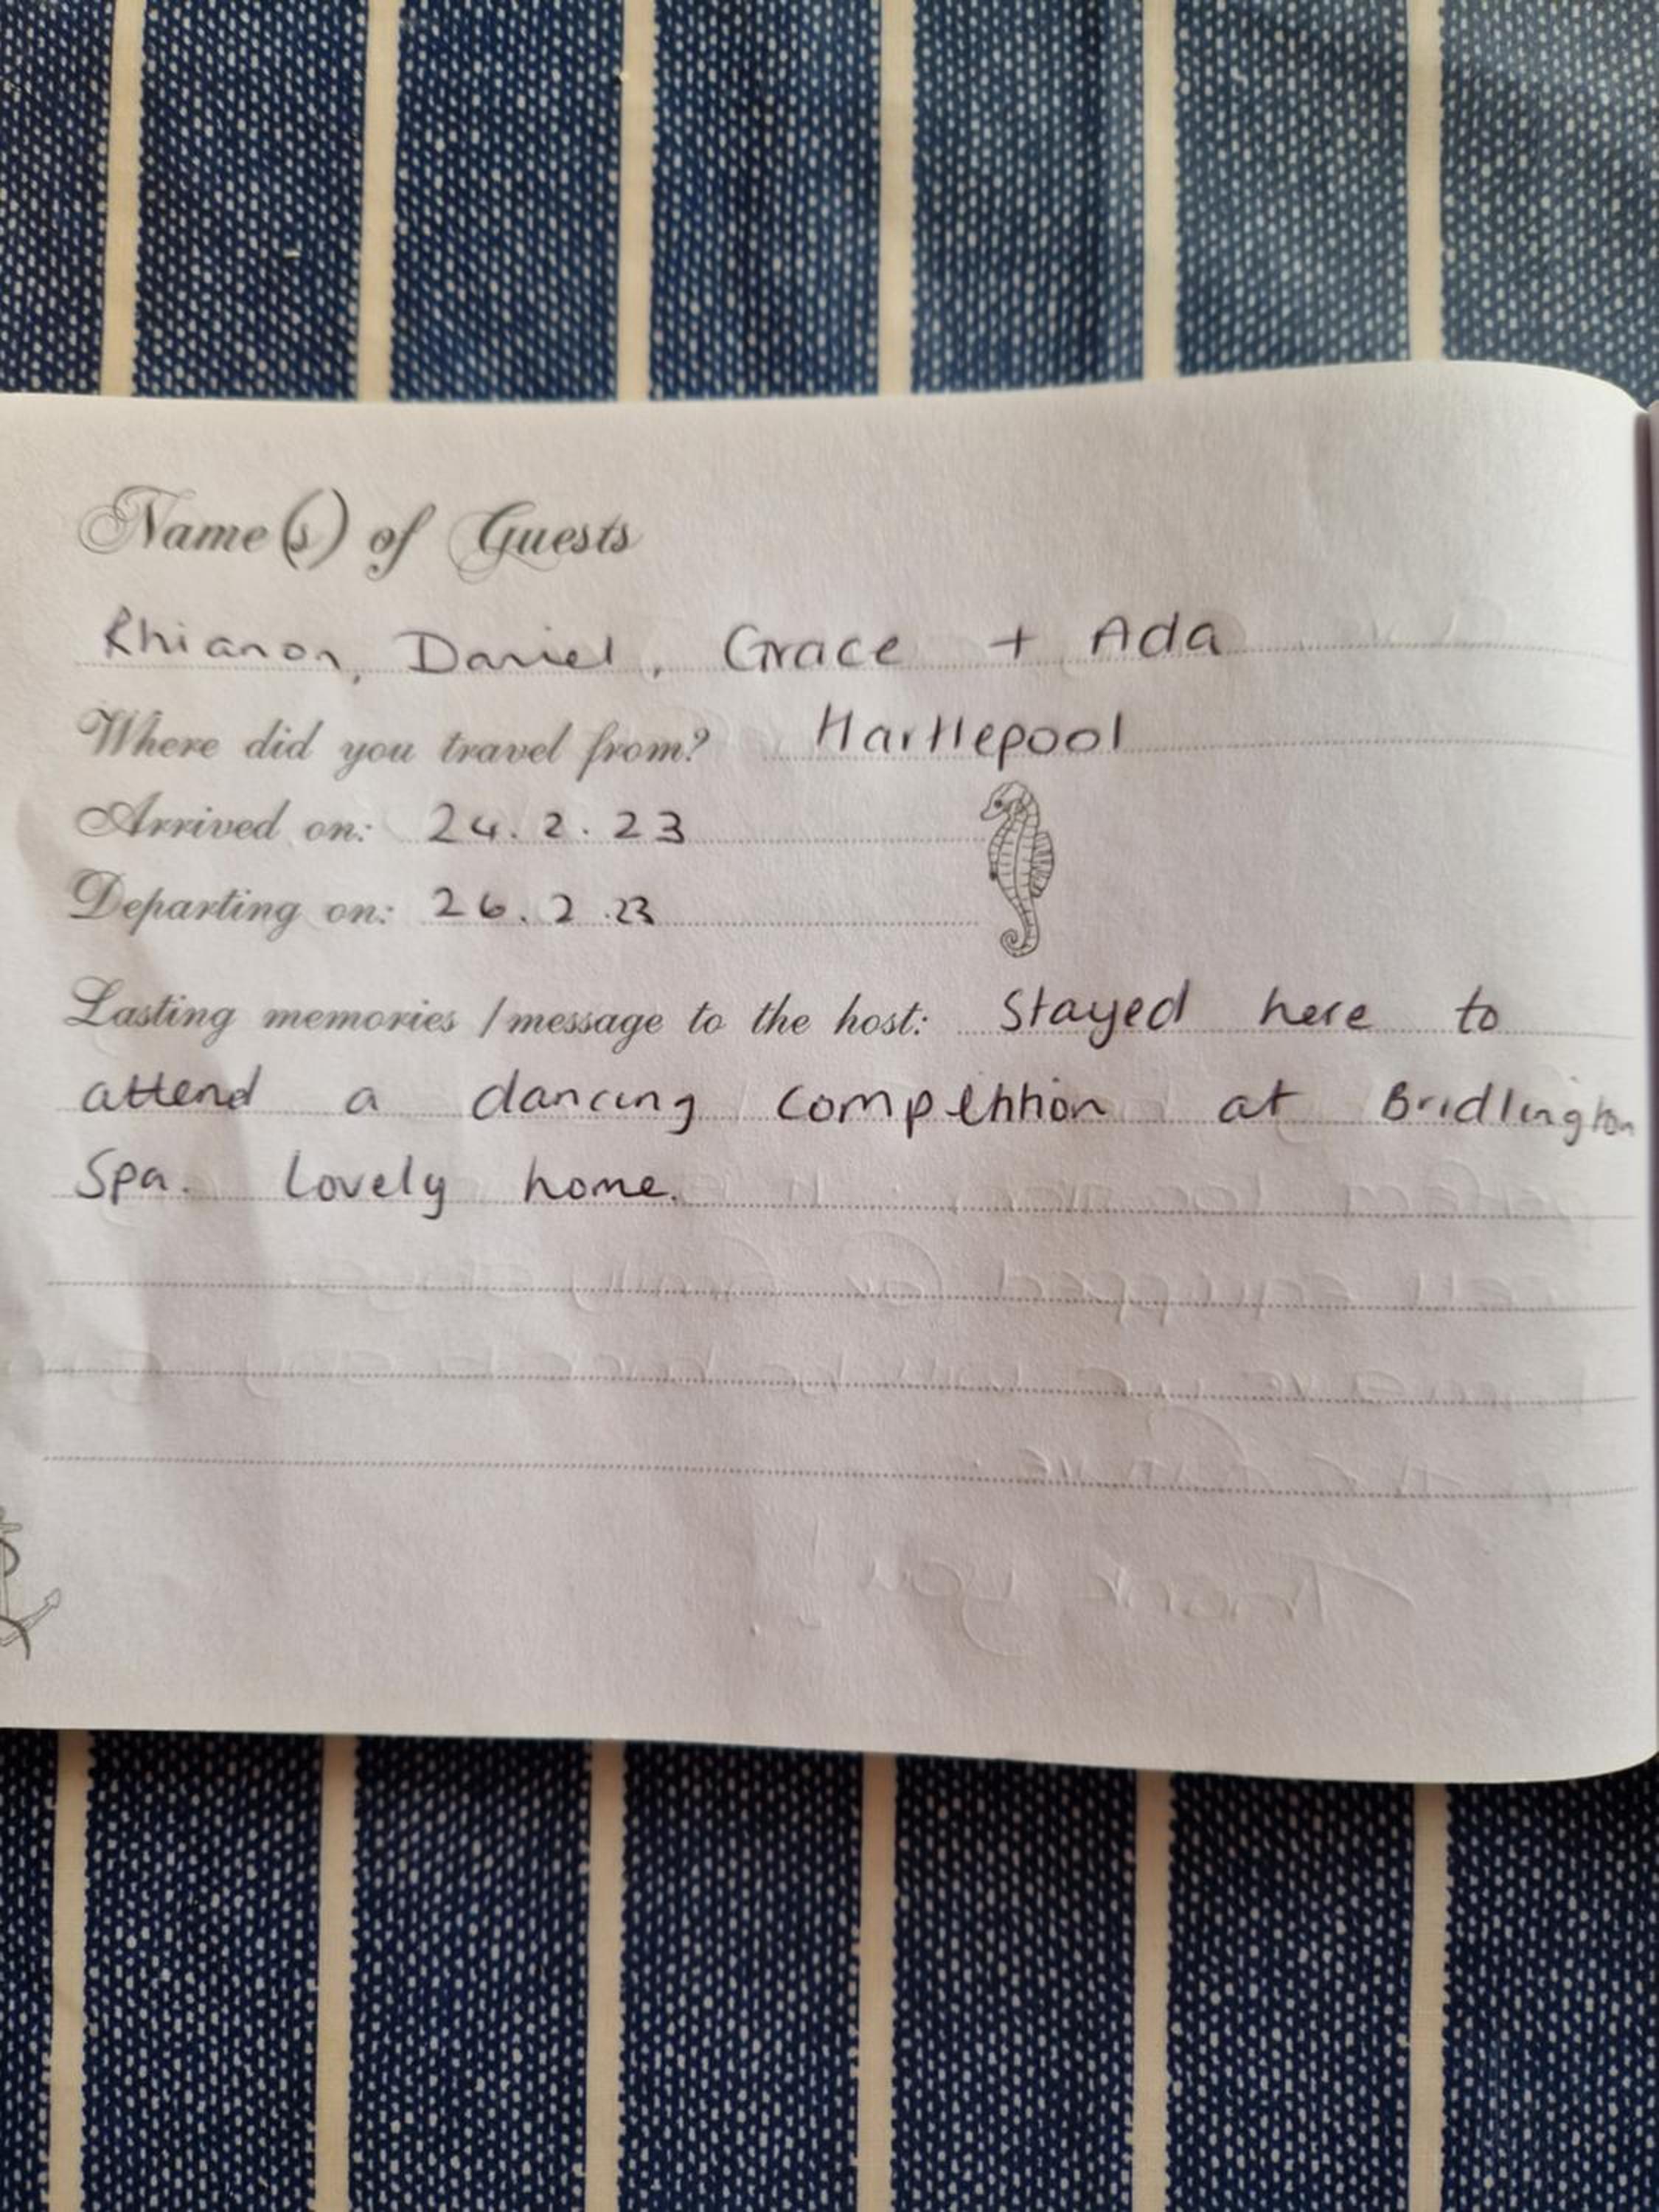 Name(s) of Guests
Rhianon, Daniel, Grace + Ada
Where did you travel from? Hartlepool
Arrived on: 24.2.23
Departing on: 26.2.23
Lasting memories / message to the host: Stayed here to
attend a dancing competition at Bridlington
Spa. Lovely home.